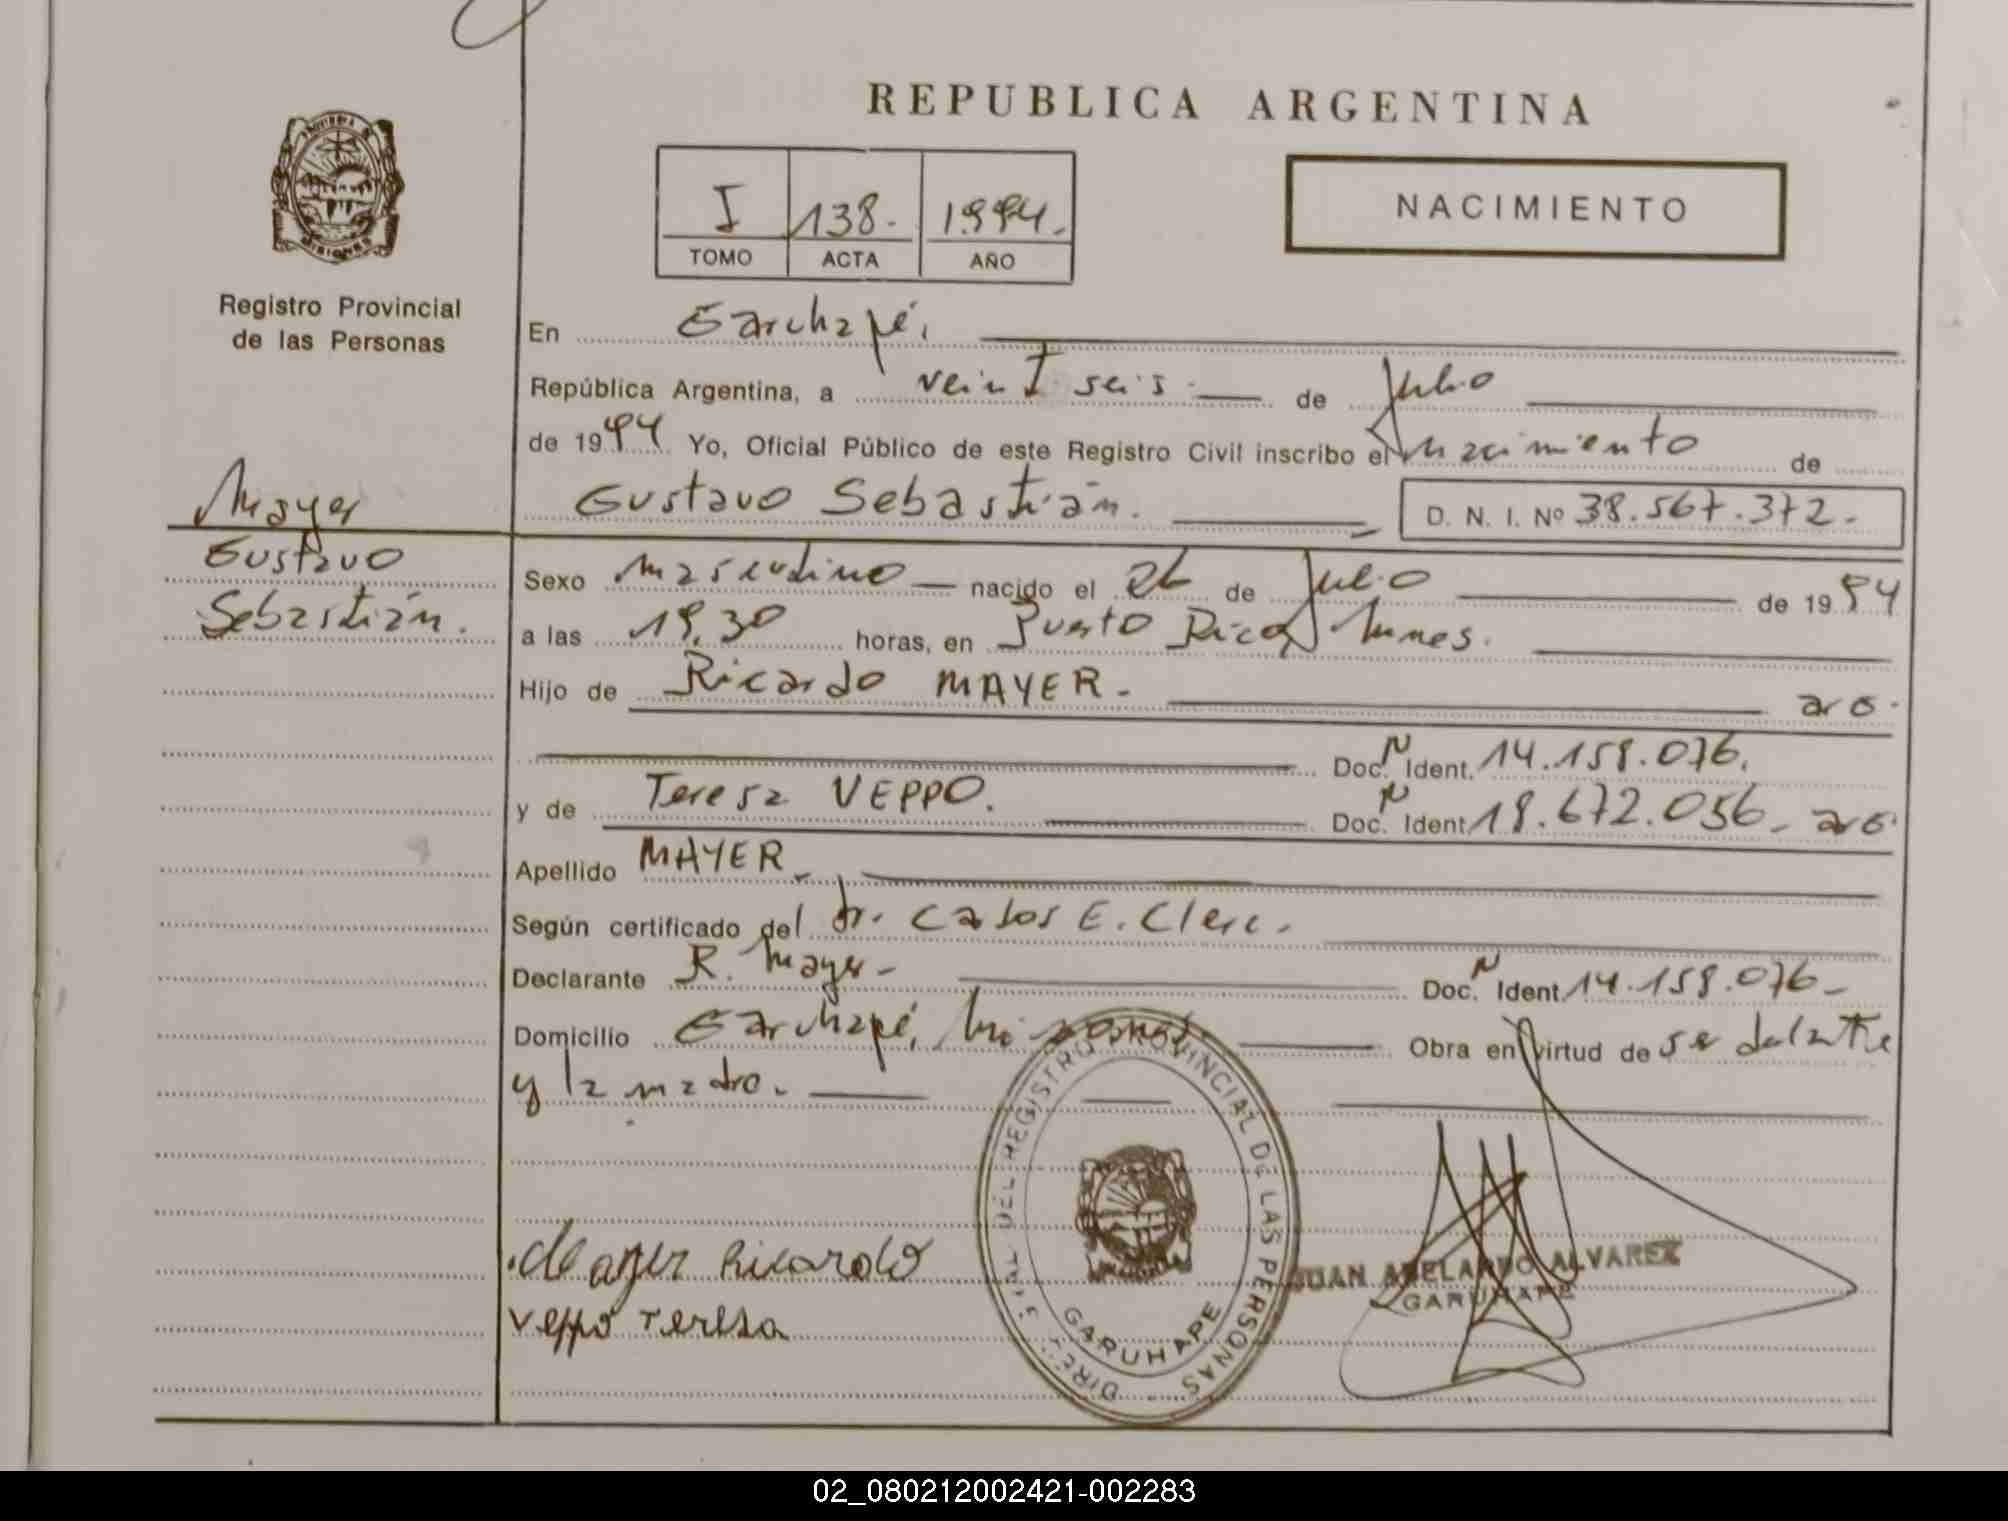 REPUBLICA ARGENTINA
PROVINCIA DE MISIONES
Registro Provincial
de las Personas
I 138.- 1994.-
TOMO ACTA AÑO
NACIMIENTO
En Garuhapé.
República Argentina, a veintiseis de Julio
de 1994 Yo, Oficial Público de este Registro Civil inscribo el nacimiento de
Gustavo Sebastián. D. N. I. Nº 38.567.372.-
Mayer
Gustavo
Sebastián.
Sexo masculino nacido el de Julio de 1994
a las 19.30 horas, en Puerto Rico,
Hijo de Ricardo MAYER.- arg.
Doc. Ident. 14.159.076.
y de Teresa VEPPO. Doc. Ident. 18.672.056.- arg.
Apellido MAYER.-
Según certificado del dr. Carlos E. Clerc.
Declarante R. Mayer- Doc. Ident. 14.159.076-
Domicilio Garuhapé, Misiones Obra en virtud de
y la madre.
Mayer Ricardo
Veppo Teresa
REGISTRO PROVINCIAL DE LAS PERSONAS
GARUHAPE
JUAN ABELARDO ALVAREZ
GARUHAPE
02_080212002421-002283